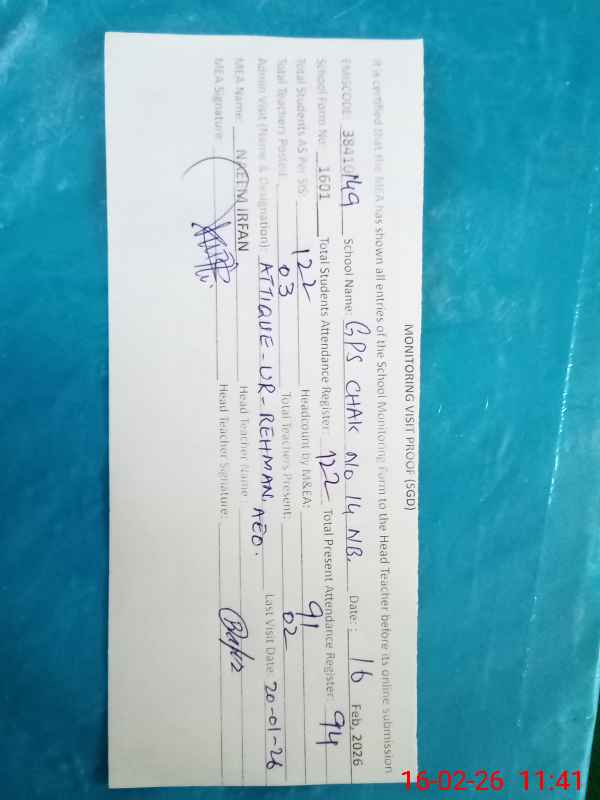 MONITORING VISIT PROOF (SGD)
It is certified that the MEA has shown all entries of the School Monitoring Form to the Head Teacher before its online submission
EMISCODE 38410149 School Name: GPS CHAK NO 14 NB. Date: : 16 Feb, 2026
School Form No: 1601 Total Students Attendance Register: 122 Total Present Attendance Register: 94
Total Students AS Per SIS: 122 Headcount by M&EA: 91
Total Teachers Posted: 03 Total Teachers Present: 02
Admin Visit (Name & Designation) ATTIQUE-UR-REHMAN, AEO. Last Visit Date: 20-01-26
MEA Name: NAEEM IRFAN Head Teacher Name:
MEA Signature: Head Teacher Signature:
16-02-26 11:41